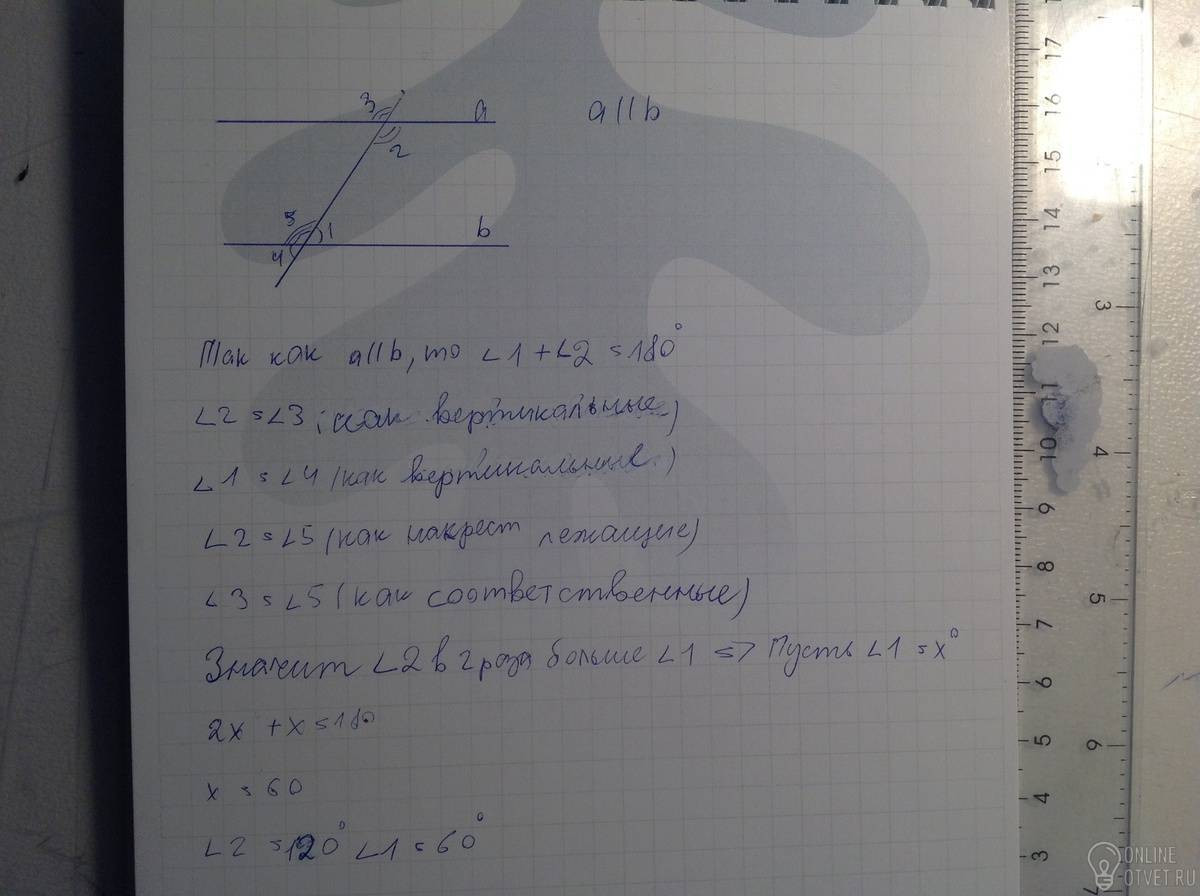 3 a a||b
2
5 1 b
4
Так как a||b, то ∠1 + ∠2 = 180°
∠2 = ∠3 (как вертикальные)
∠1 = ∠4 (как вертикальные)
∠2 = ∠5 (как накрест лежащие)
∠3 = ∠5 (как соответственные)
Значит ∠2 в 2 раза больше ∠1 => Пусть ∠1 = x°
2x + x = 180
x = 60
∠2 = 120° ∠1 = 60°
17
16
15
14
13
12
11
10
9
8
7
6
5
4
3
3
4
5
6
7
ONLINE
-OTVET.RU